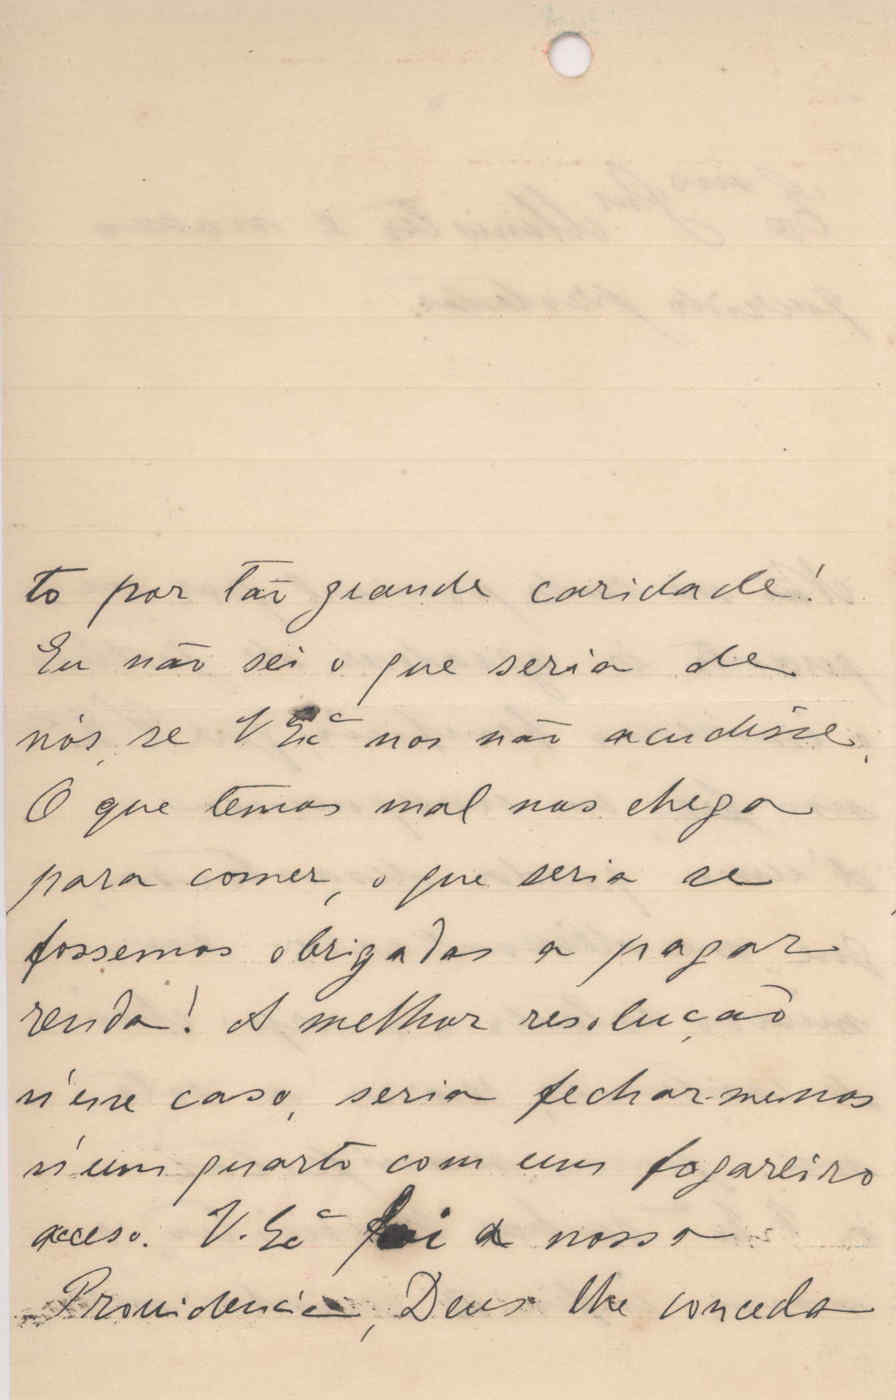 to por tão grande caridade!
Eu não sei o que seria de
nós, se V Exª nos não acudisse.
O que temos mal nos chega
para comer, o que seria se
fossemos obrigadas a pagar
renda! A melhor resolução
n'esse caso, seria fechar-mennos
n'um quarto com um fogareiro
acceso. V. Exª foi a nossa
Providencia, Deus lhe conceda